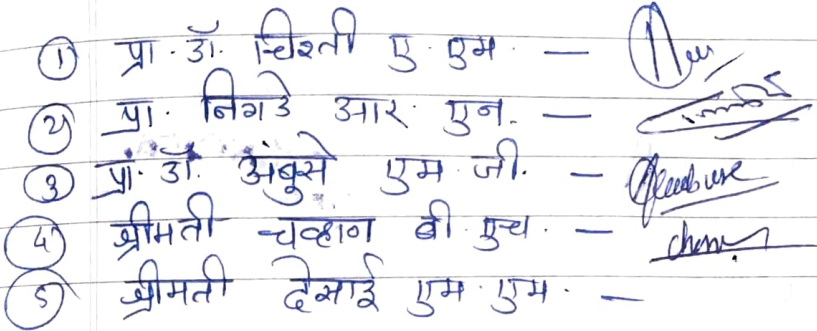 ① प्रा. डॉ. चिश्ती ए. एम. —
② प्रा. निगडे आर. एन. —
③ प्रा. डॉ. अंबुसे एम. जी. — Ambuse
④ श्रीमती चव्हाण बी. एच. —
⑤ श्रीमती देसाई एम. एम. —